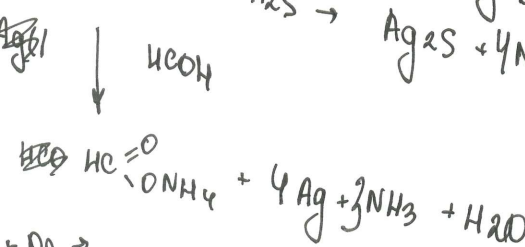 → Ag2S + 4N
HCOH
HC =O
\ ONH4 + 4Ag + 3NH3 + H2O